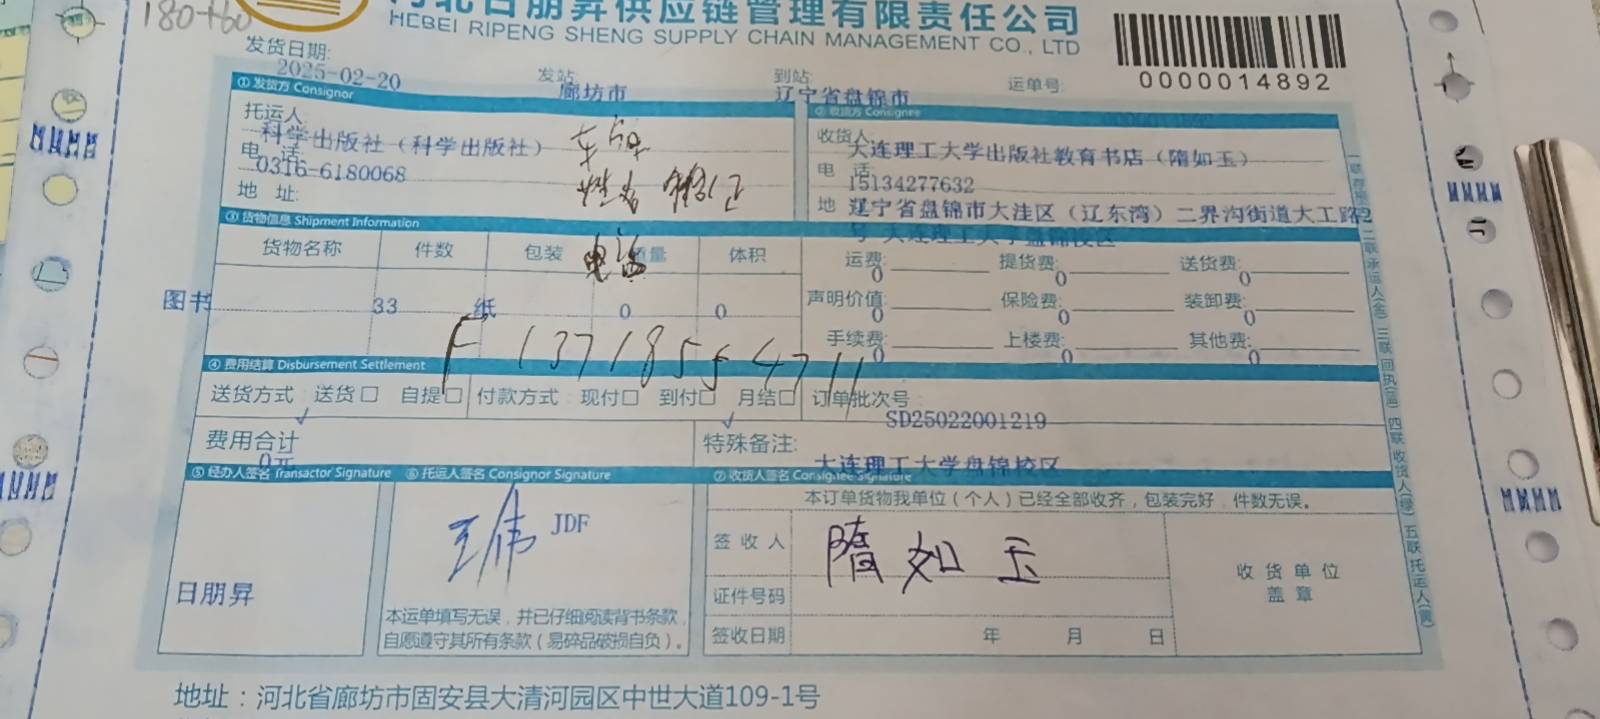 180+60
河北日朋昇供应链管理有限责任公司
HEBEI RIPENG SHENG SUPPLY CHAIN MANAGEMENT CO., LTD
0000014892
发货日期:
2025-02-20
发站:
廊坊市
到站:
辽宁省盘锦市
运单号:
①发货方 Consignor
托运人
科学出版社（科学出版社）
电 话
0316-6180068
地 址:
车牌
姓名
电话
F 13718554711
②收货方 Consignee
收货人
大连理工大学出版社教育书店（隋如玉）
电 话
15134277632
地
辽宁省盘锦市大洼区（辽东湾）二界沟街道大工路2
号 大连理工大学盘锦校区
③货物信息 Shipment Information
货物名称 件数 包装 质量 体积
图书 33 纸 0 0
运费: 0 提货费: 0 送货费: 0
声明价值: 0 保险费: 0 装卸费: 0
手续费: 0 上楼费: 0 其他费: 0
④费用结算 Disbursement Settlement
送货方式 送货□ 自提□ 付款方式 现付□ 到付□ 月结□ 订单批次号
✓ ✓ SD25022001219
费用合计
0元
特殊备注:
大连理工大学盘锦校区
⑤经办人签名 Transactor Signature
日朋昇
⑥托运人签名 Consignor Signature
王伟 JDF
本运单填写无误，并已仔细阅读背书条款，
自愿遵守其所有条款（易碎品破损自负）。
⑦收货人签名 Consignee Signature
本订单货物我单位（个人）已经全部收齐，包装完好 件数无误。
签收人 隋如玉
证件号码
签收日期 年 月 日
收货单位
盖章
地址：河北省廊坊市固安县大清河园区中世大道109-1号